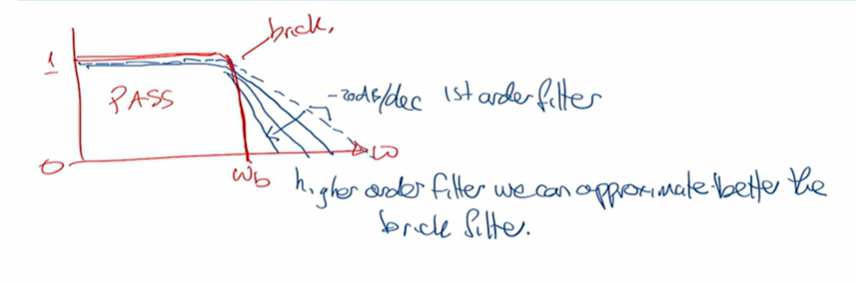 brick.
1
PASS
-20dB/dec 1st order filter
0
ω
ωb
higher order filter we can approximate better the
brick filter.